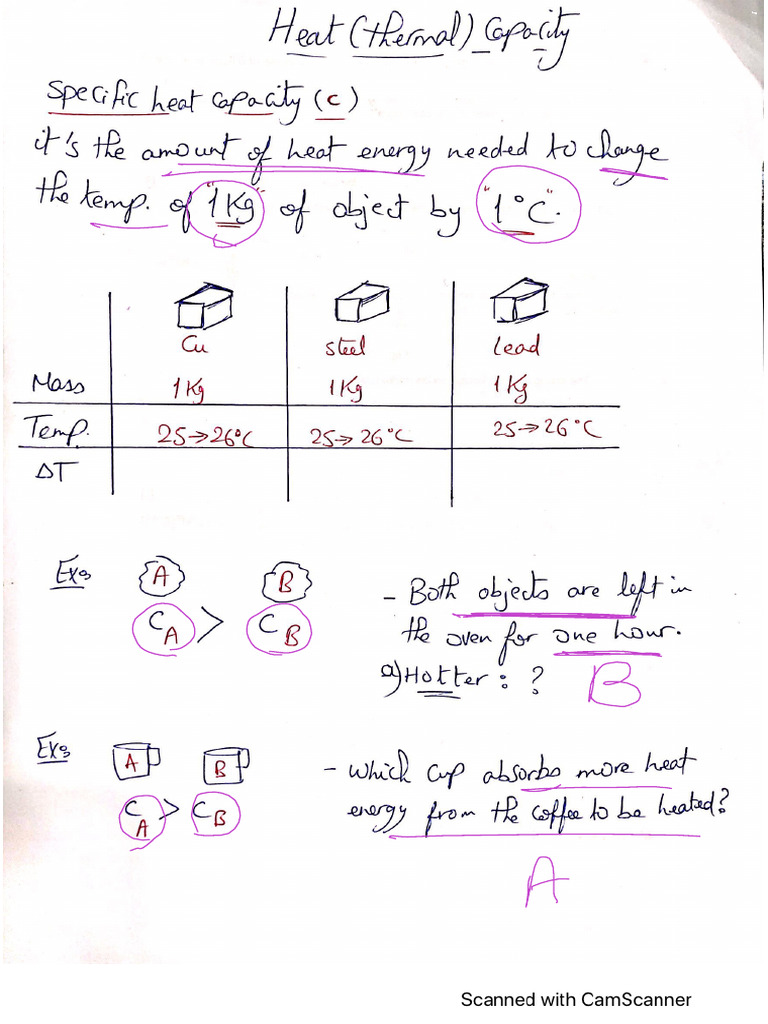 Heat (thermal) Capacity
Specific heat capacity (c)
it's the amount of heat energy needed to change
the temp. of "1Kg" of object by "1°C".
Cu steel Lead
Mass 1Kg 1Kg 1Kg
Temp. 25→26°C 25→26°C 25→26°C
ΔT
Ex: A B
C_A > C_B
- Both objects are left in
the oven for one hour.
a) Hotter : ? B
Ex: A B
C_A > C_B
- which cup absorbs more heat
energy from the coffee to be heated?
A
Scanned with CamScanner